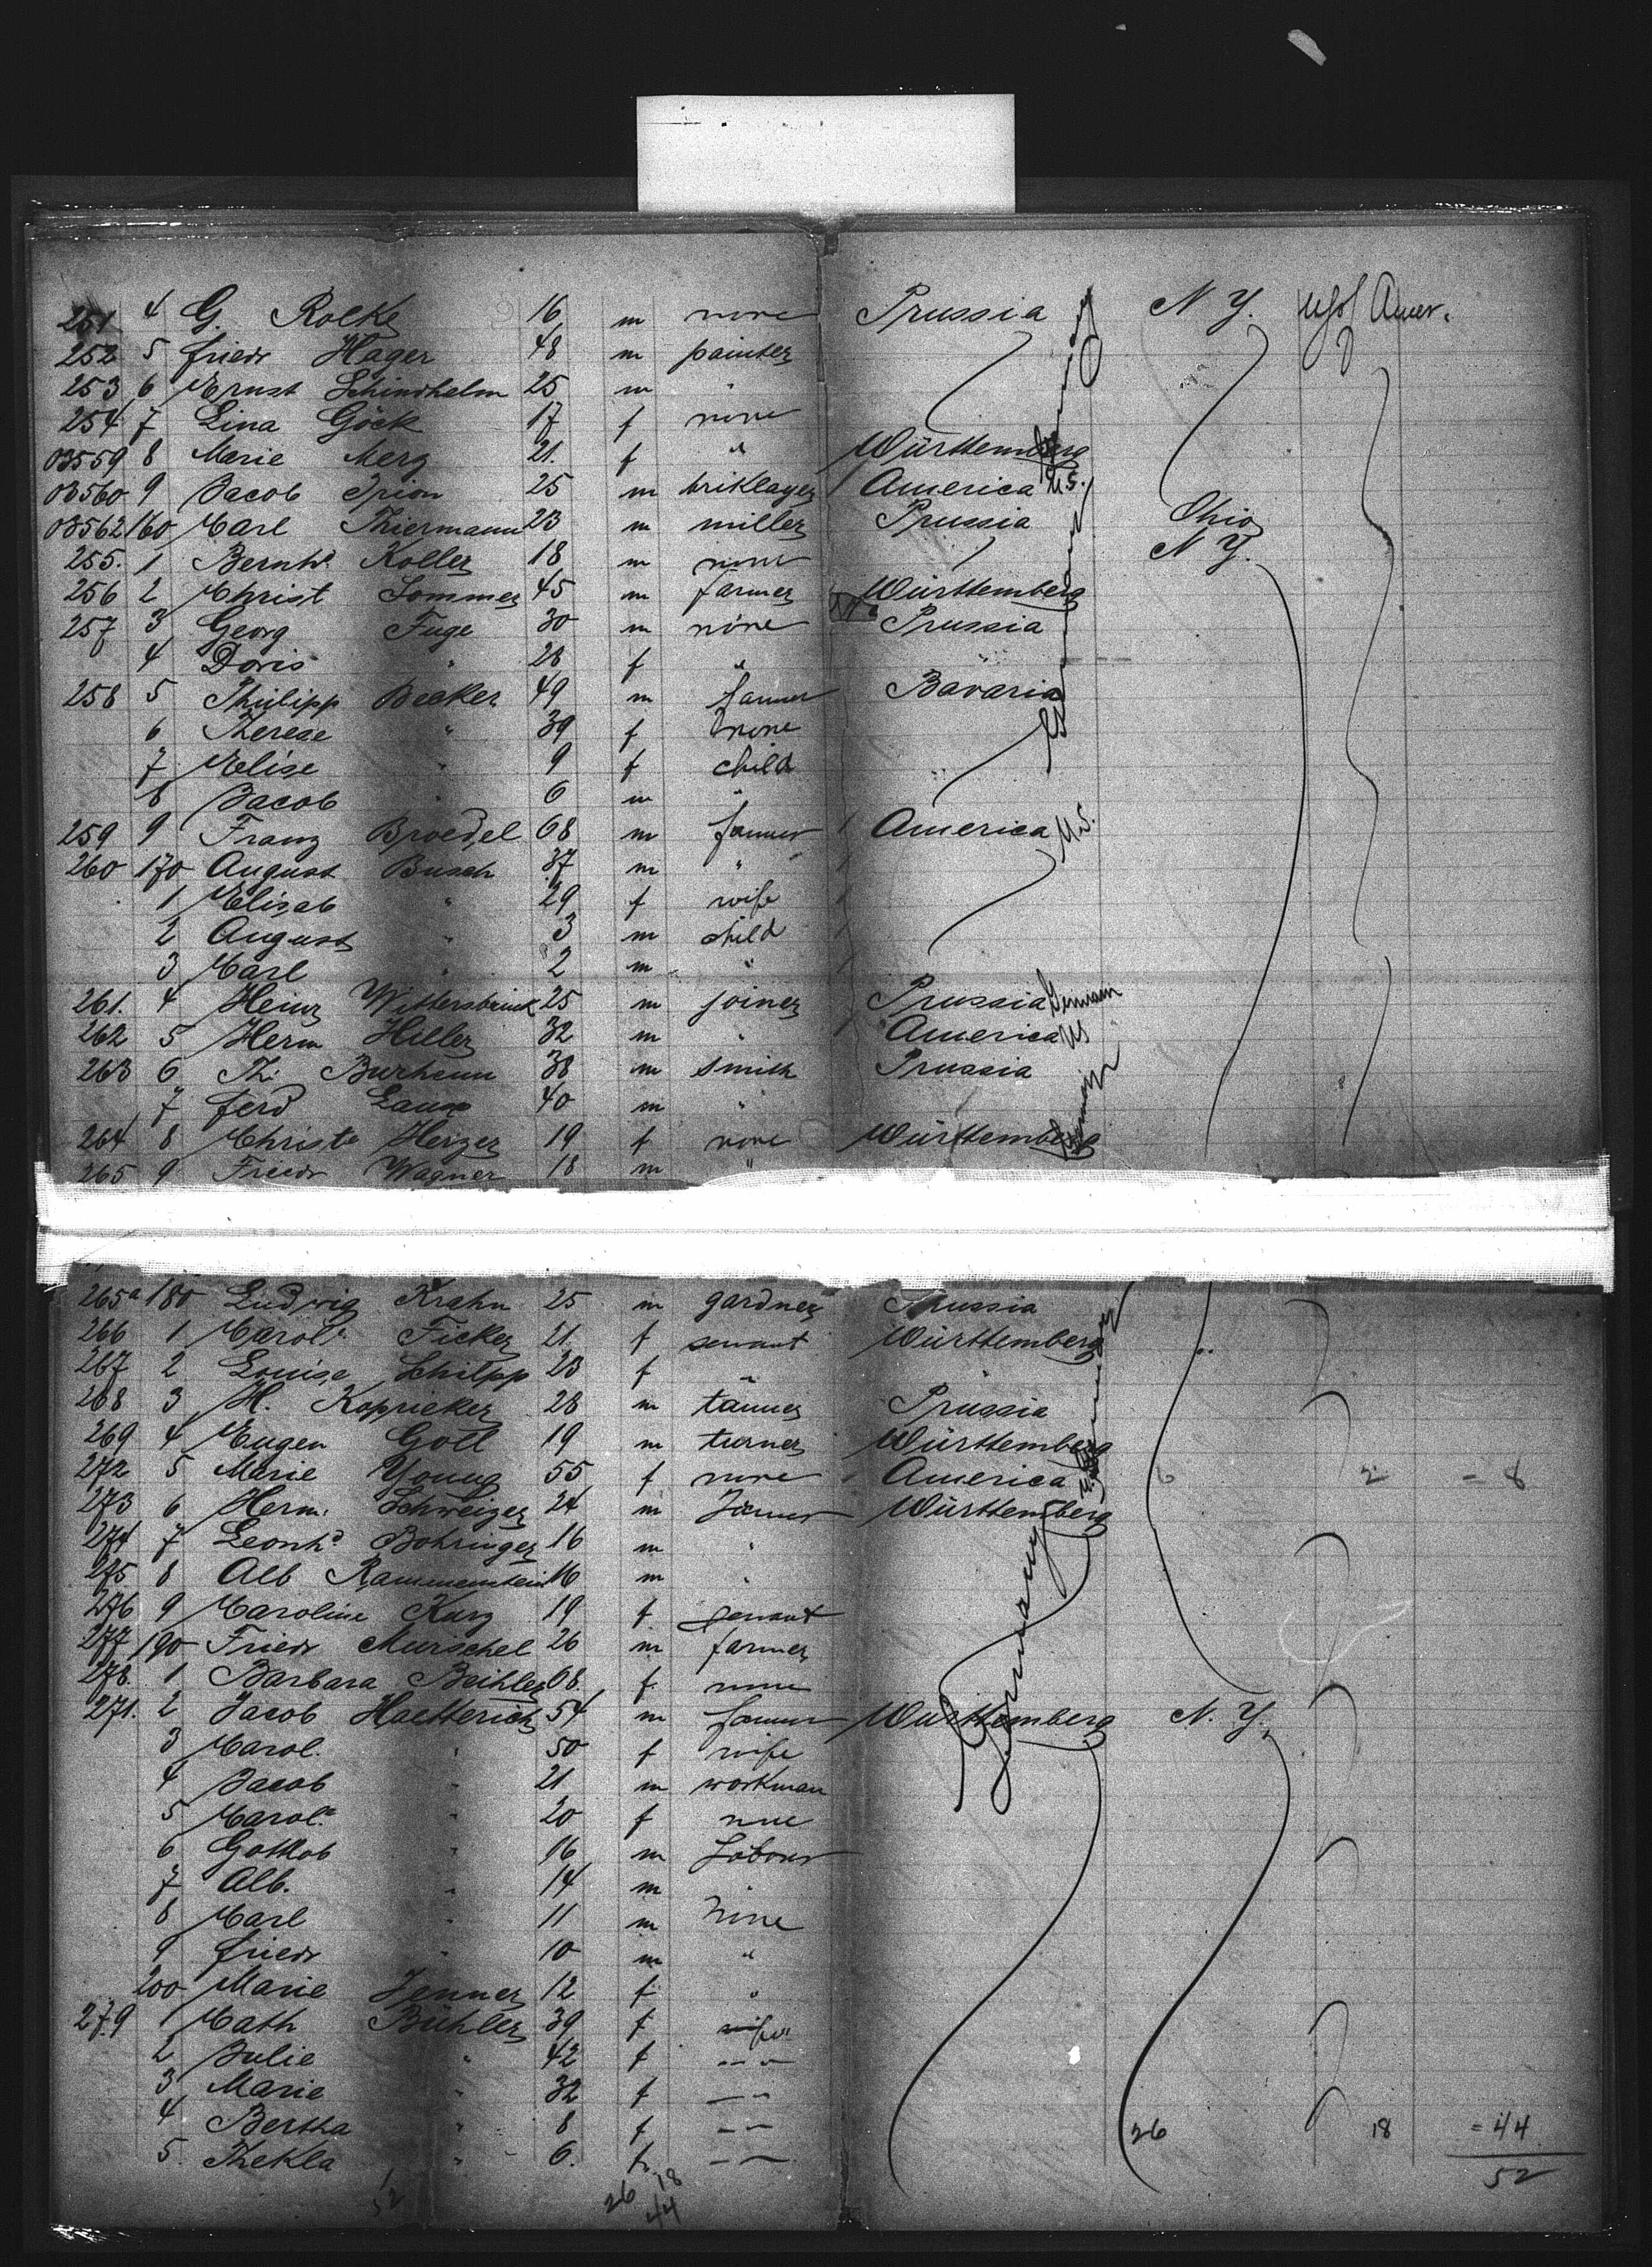 251 4 G. Rolke 16 m none Prussia N Y. Amer.
252 5 Friedr Hager 48 m painter
253 6 Ernst Schindhelm 25 m "
254 7 Lina Göck 17 f none
03559 8 Marie Merz 21. f " Württemberg
03560 9 Jacob Spion 25 m briklayer America U.S.
03562 160 Carl Thiermann 23 m miller Prussia Ohio
255. 1 Bernhd Koller 18 m none N Y.
256 2 Christ Sommer 45 m farmer Württemberg
257 3 Georg Fuge 30 m none Prussia
4 Doris " 28 f "
258 5 Philipp Becker 49 m farmer Bavaria
6 Therese " 39 f none
7 Elise " 9 f child
8 Jacob " 6 m "
259 9 Franz Broedel 68 m farmer America U.S.
260 170 August Busch 37 m "
1 Elisab " 29 f wife
2 August " 3 m child
3 Carl " 2 m "
261. 4 Heinr Wittersbrink 25 m joiner Prussia German
262 5 Herm Heller 32 m " America US
263 6 Th. Burhenn 38 m smith Prussia
7 Ferd Laux 40 m "
264 8 Christe Herzer 19 f none Württemberg
265 9 Friedr Wagner 18 m "
265a 180 Ludwig Krahn 25 m gardner Prussia
266 1 Carole Ficker 21. f servant Württemberg
267 2 Louise Schilpp 23 f "
268 3 H. Kopricker 28 m tanner Prussia
269 4 Eugen Goll 19 m turner Württemberg
272 5 Marie Young 55 f none America 6 2 = 8
273 6 Herm. Schweizer 24 m farmer Württemberg
274 7 Leonhd Bohringer 16 m "
275 8 Alb Rammenstein 16 m "
276 9 Caroline Kurz 19 f servant
277 190 Friedr Murschel 26 m farmer
278. 1 Barbara Beihler 68. f none
271. 2 Jacob Haetterich 54 m farmer Württemberg N. Y.
3 Carol. " 50 f wife
4 Jacob " 21 m workman
5 Carole " 20 f none
6 Gottlob " 16 m Labour
7 Alb. " 14 m
8 Carl " 11 m none
9 Friedr " 10 m "
200 Marie Jenner 12 f "
279 1 Cath Bühler 39 f wife
2 Julie " 42 f
3 Marie " 32 f
4 Bertha " 8 f 26 18 = 44
5. Thekla " 6. f 52
Germany
52 26 18
44